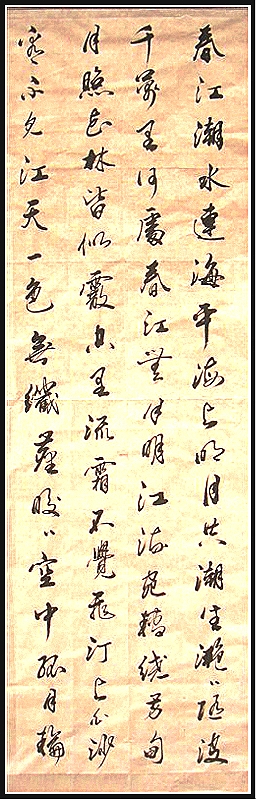 春江潮水連海平海上明月共潮生灩〻隨波
千萬里何處春江無月明江流宛轉繞芳甸
月照花林皆似霰空里流霜不覺飛汀上白沙
看不見江天一色無纖塵皎〻空中孤月輪